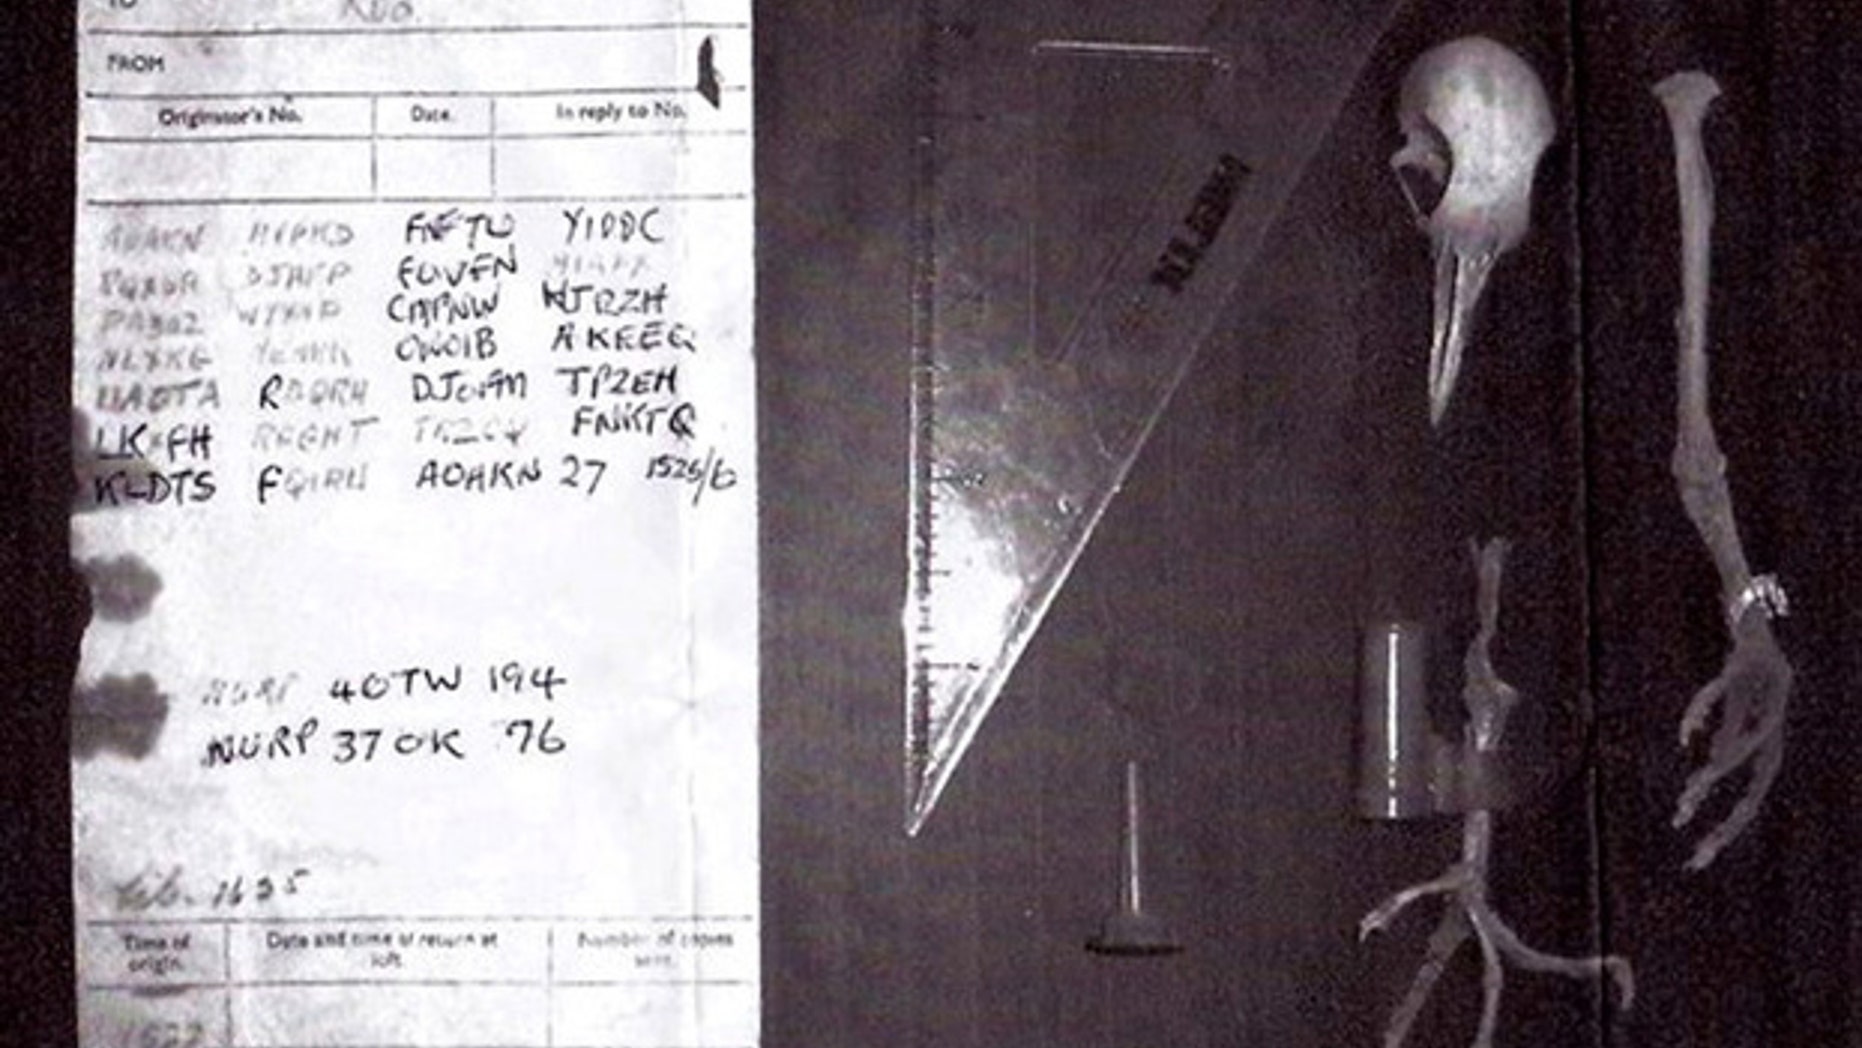 TO
FROM
Originator's No. Date. In reply to No.
AOAKN HVPKD FNFTW YIDDC
RQXSR DJHFP GOVFN
PABUZ WYYNP CMPNW HJRZH
NLXKG OWOIB AKEEQ
UAOTA RBQRH DJOFM TPZEH
LKXGH RGGHT JRZCQ FNKTQ
KLDTS FQIRW AOAKN 27 1525/6
NURP 40TW 194
NURP 37OK 76
lib. 1625
Time of Date and time of return at Number of copies
origin. loft. sent.
1522